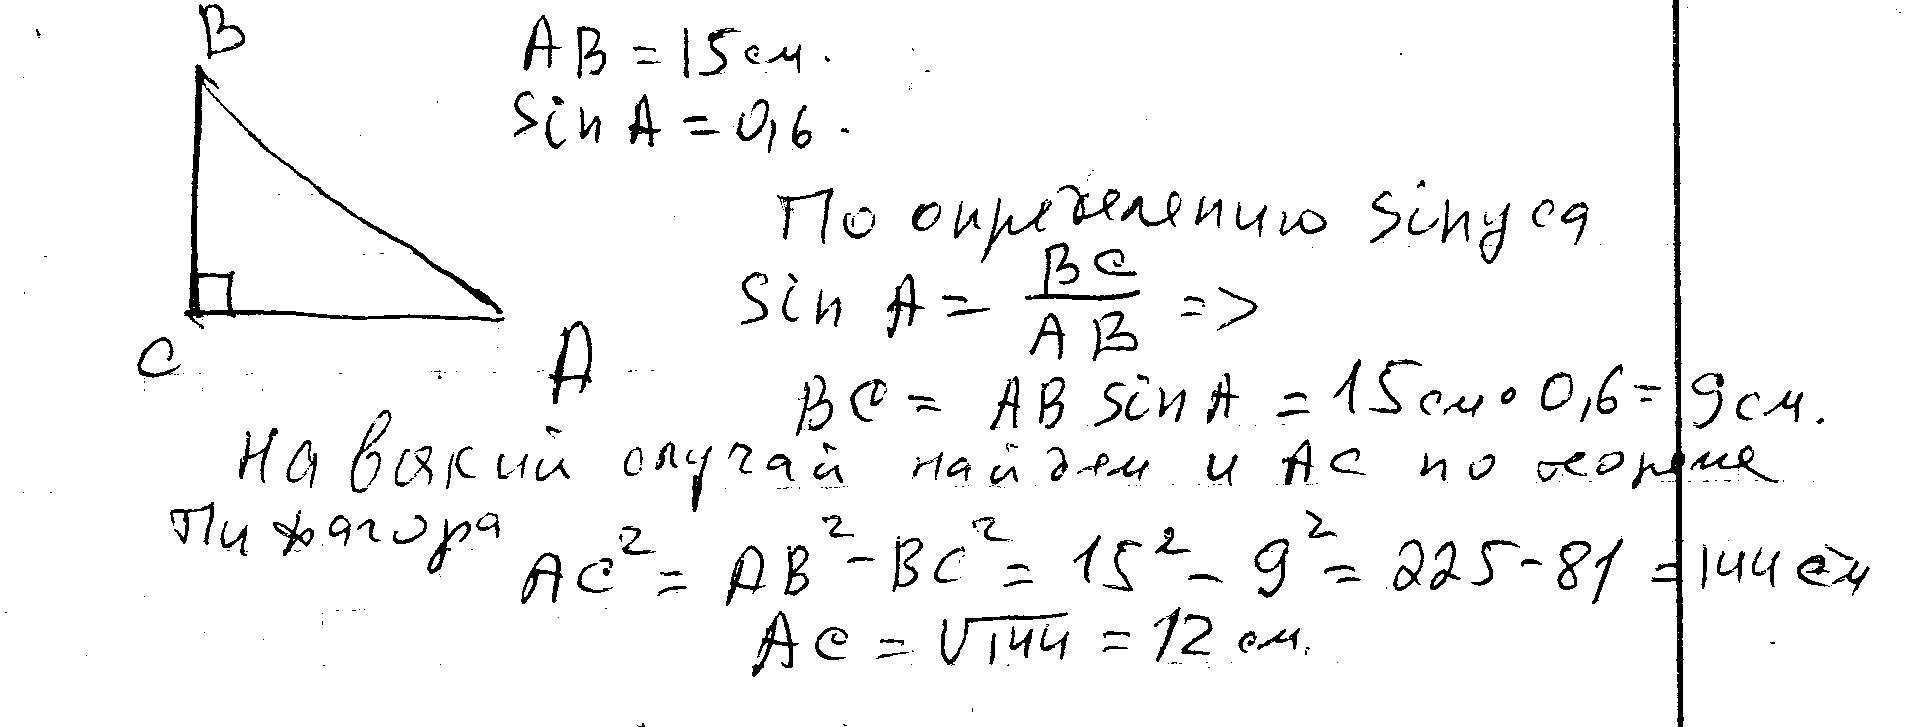 B
AB = 15 см.
Sin A = 0,6.
По определению Sinуса
Sin A = BC/AB =>
C
A
BC = AB sin A = 15 см • 0,6 = 9 см.
На всякий случай найдем и AC по теореме
Пифагора
AC² = AB² - BC² = 15² - 9² = 225 - 81 = 144 см
AC = √144 = 12 см.